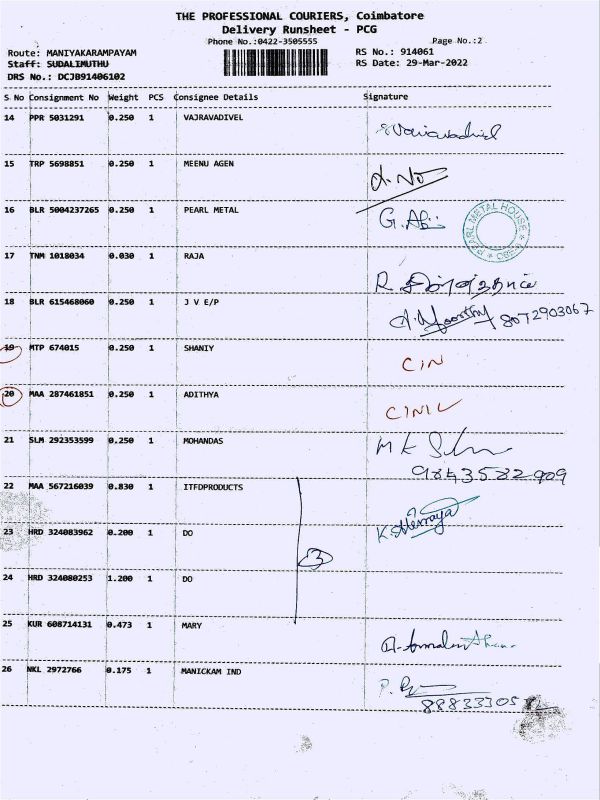 THE PROFESSIONAL COURIERS, Coimbatore
Delivery Runsheet - PCG
Phone No.:0422-3505555 Page No.:2
Route: MANIYAKARAMPAYAM RS No.: 914061
Staff: SUDALIMUTHU RS Date: 29-Mar-2022
DRS No.: DCJB91406102
S No Consignment No Weight PCS Consignee Details Signature
14 PPR 5031291 0.250 1 VAJRAVADIVEL
15 TRP 5698851 0.250 1 MEENU AGEN
16 BLR 5004237265 0.250 1 PEARL METAL
PEARL METAL HOUSE
17 TNM 1018034 0.030 1 RAJA
18 BLR 615468060 0.250 1 J V E/P
A. Moorthy 8072903067
19 MTP 674015 0.250 1 SHANIY CIN
20 MAA 287461851 0.250 1 ADITHYA
21 SLM 292353599 0.250 1 MOHANDAS
9843582909
22 MAA 567216039 0.830 1 ITFDPRODUCTS
23 HRD 324083962 0.200 1 DO
3
24 HRD 324080253 1.200 1 DO
25 KUR 608714131 0.473 1 MARY
26 NKL 2972766 0.175 1 MANICKAM IND